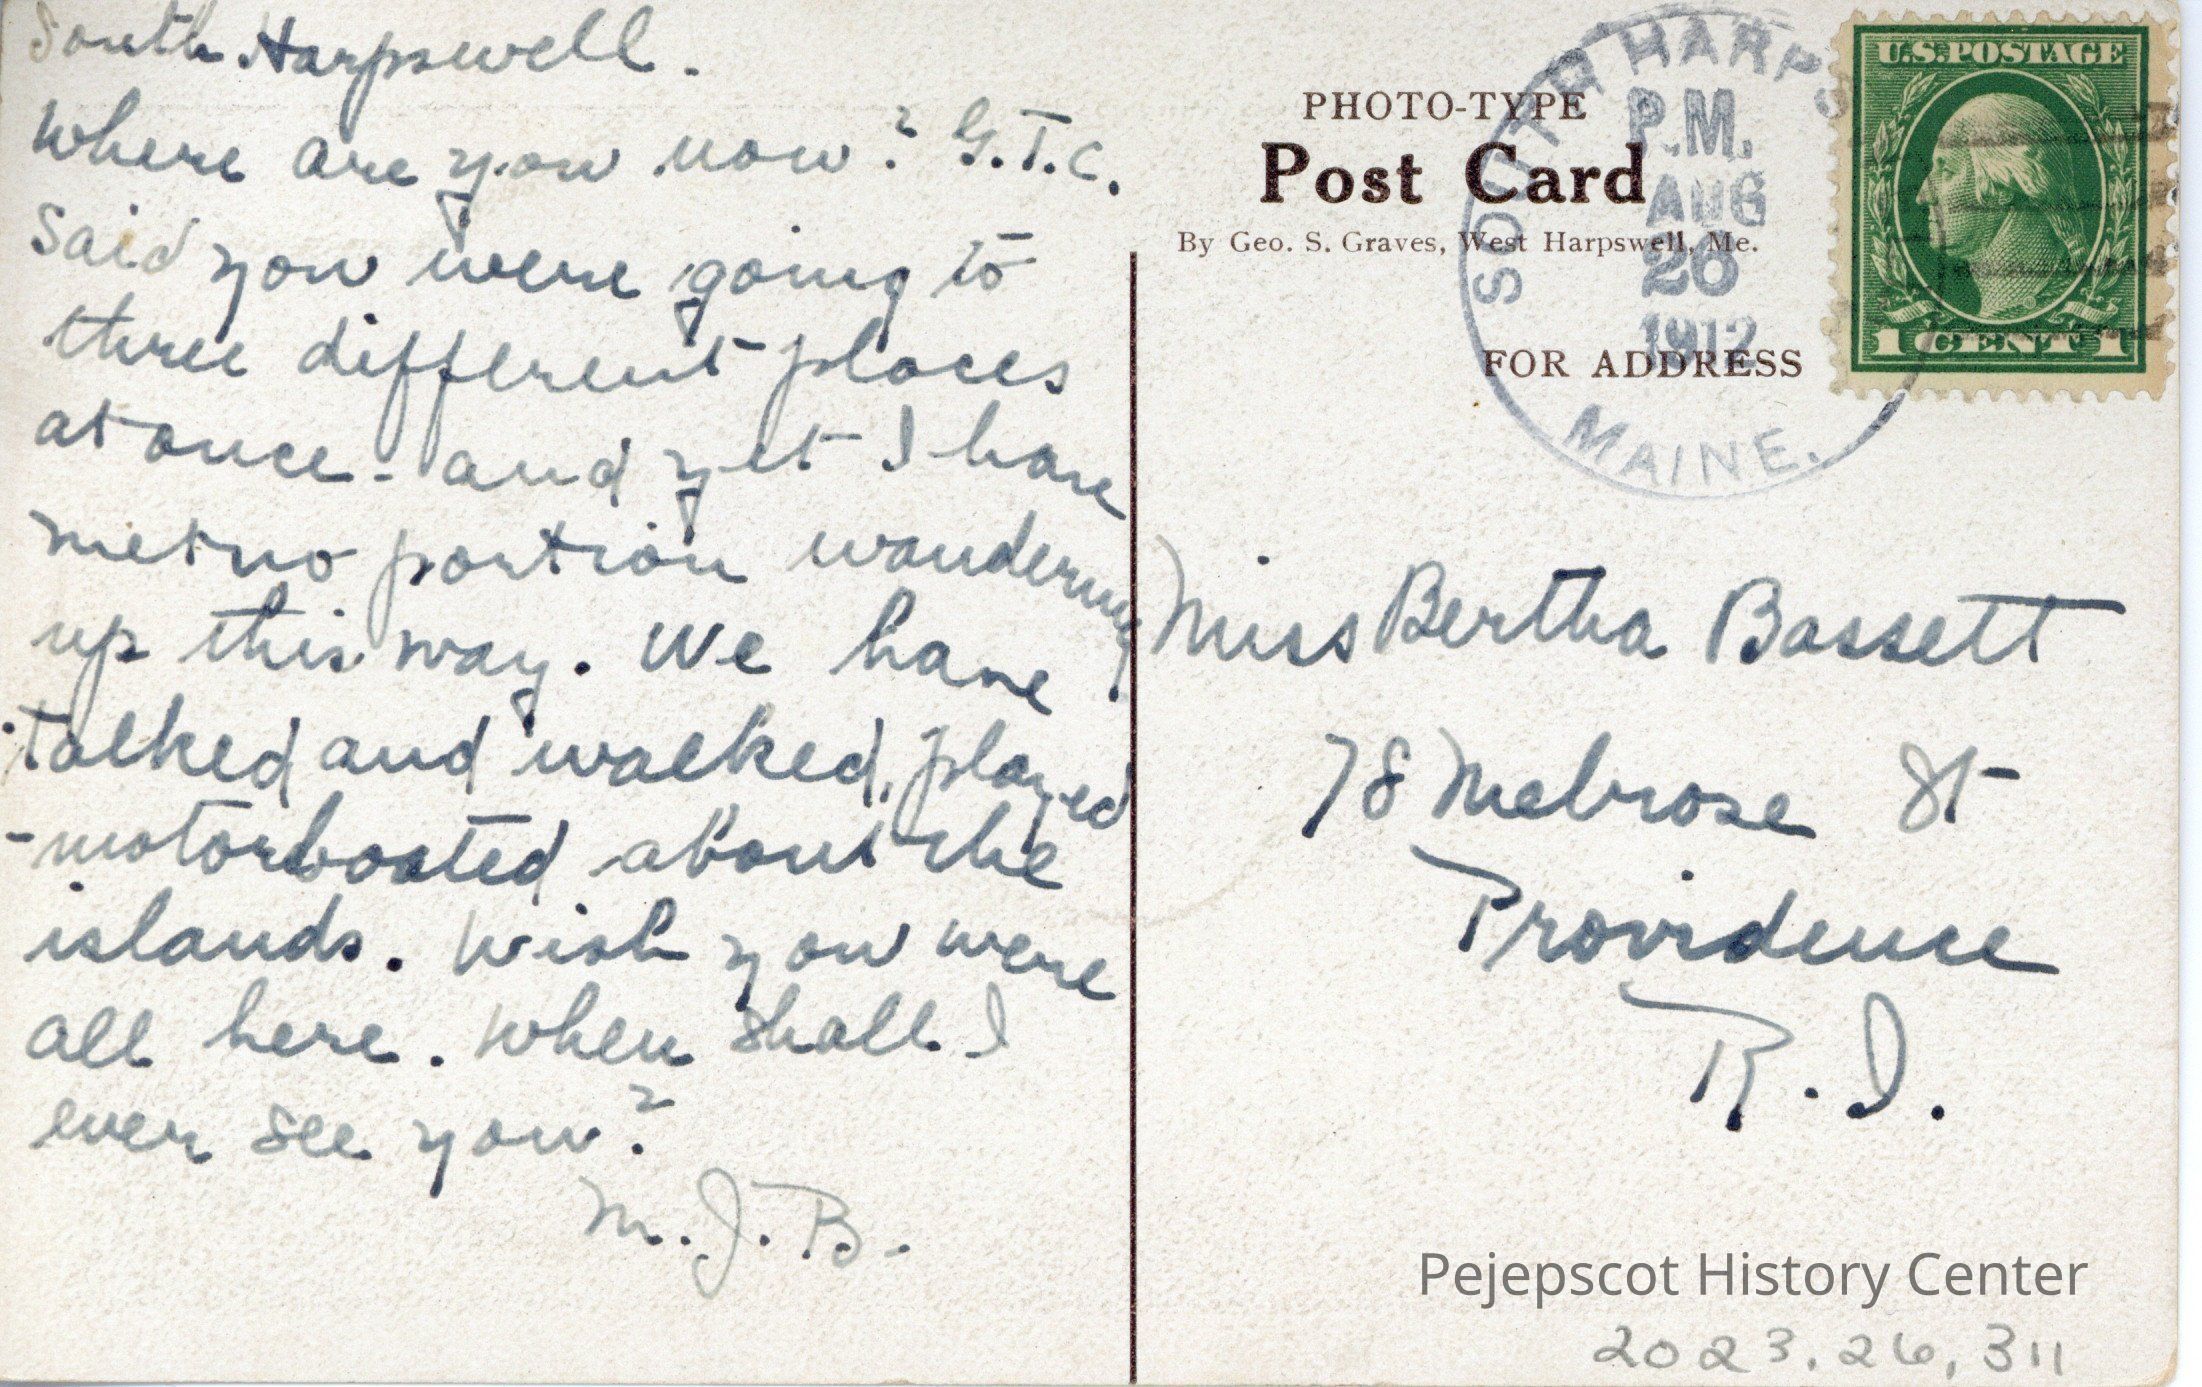 South Harpswell.
Where are you now? G.T.C.
said you were going to
three different places
at once - and yet I have
met no portion wandering
up this way. We have
talked and walked, played
-motorboated about the
islands. Wish you were
all here. When shall I
ever see you?
M.J.B.
PHOTO-TYPE
Post Card
By Geo. S. Graves, West Harpswell, Me.
FOR ADDRESS
SOUTH HARPS
P.M.
AUG
26
1912
MAINE.
U.S. POSTAGE
1 CENT 1
Miss Bertha Bassett
78 Melrose St
Providence
R.I.
Pejepscot History Center
2023.26.311